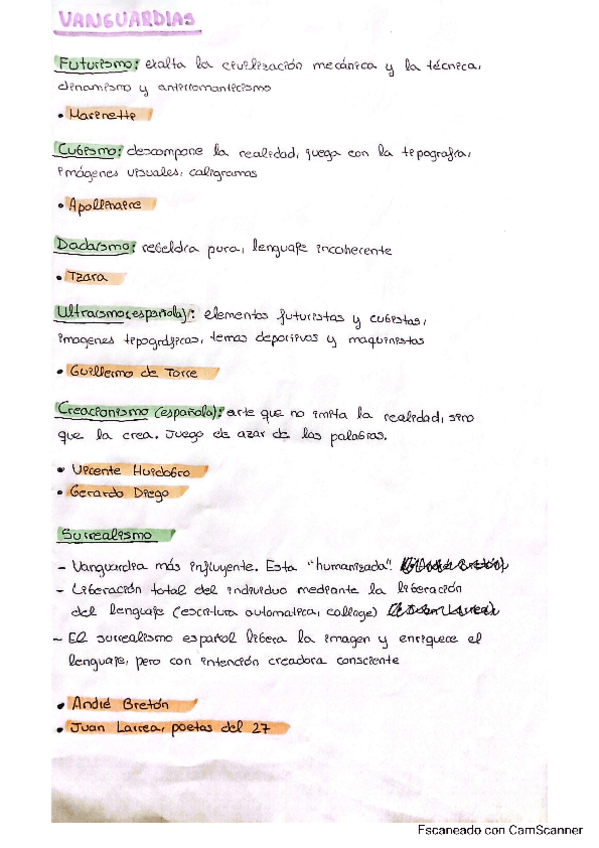 VANGUARDIAS
Futurismo: exalta la civilización mecánica y la técnica,
dinamismo y antirromanticismo
• Marinette
Cubismo: descompone la realidad, juega con la tipografía,
imágenes visuales, caligramas
• Apollinaire
Dadaísmo: rebeldía pura, lenguaje incoherente
• Tzara
Ultraísmo (española): elementos futuristas y cubistas,
imagenes tipográficas, temas deportivos y maquinistas
• Guillermo de Torre
Creacionismo (española): arte que no imita la realidad, sino
que la crea. Juego de azar de las palabras.
• Vicente Huidobro
• Gerardo Diego
Surrealismo
- Vanguardia más influyente. Esta "humanizada".
- Liberación total del individuo mediante la liberación
del lenguaje (escritura automática, collage)
- El surrealismo español libera la imagen y enriquece el
lenguaje, pero con intención creadora consciente
• André Bretón
• Juan Larrea, poetas del 27
Escaneado con CamScanner